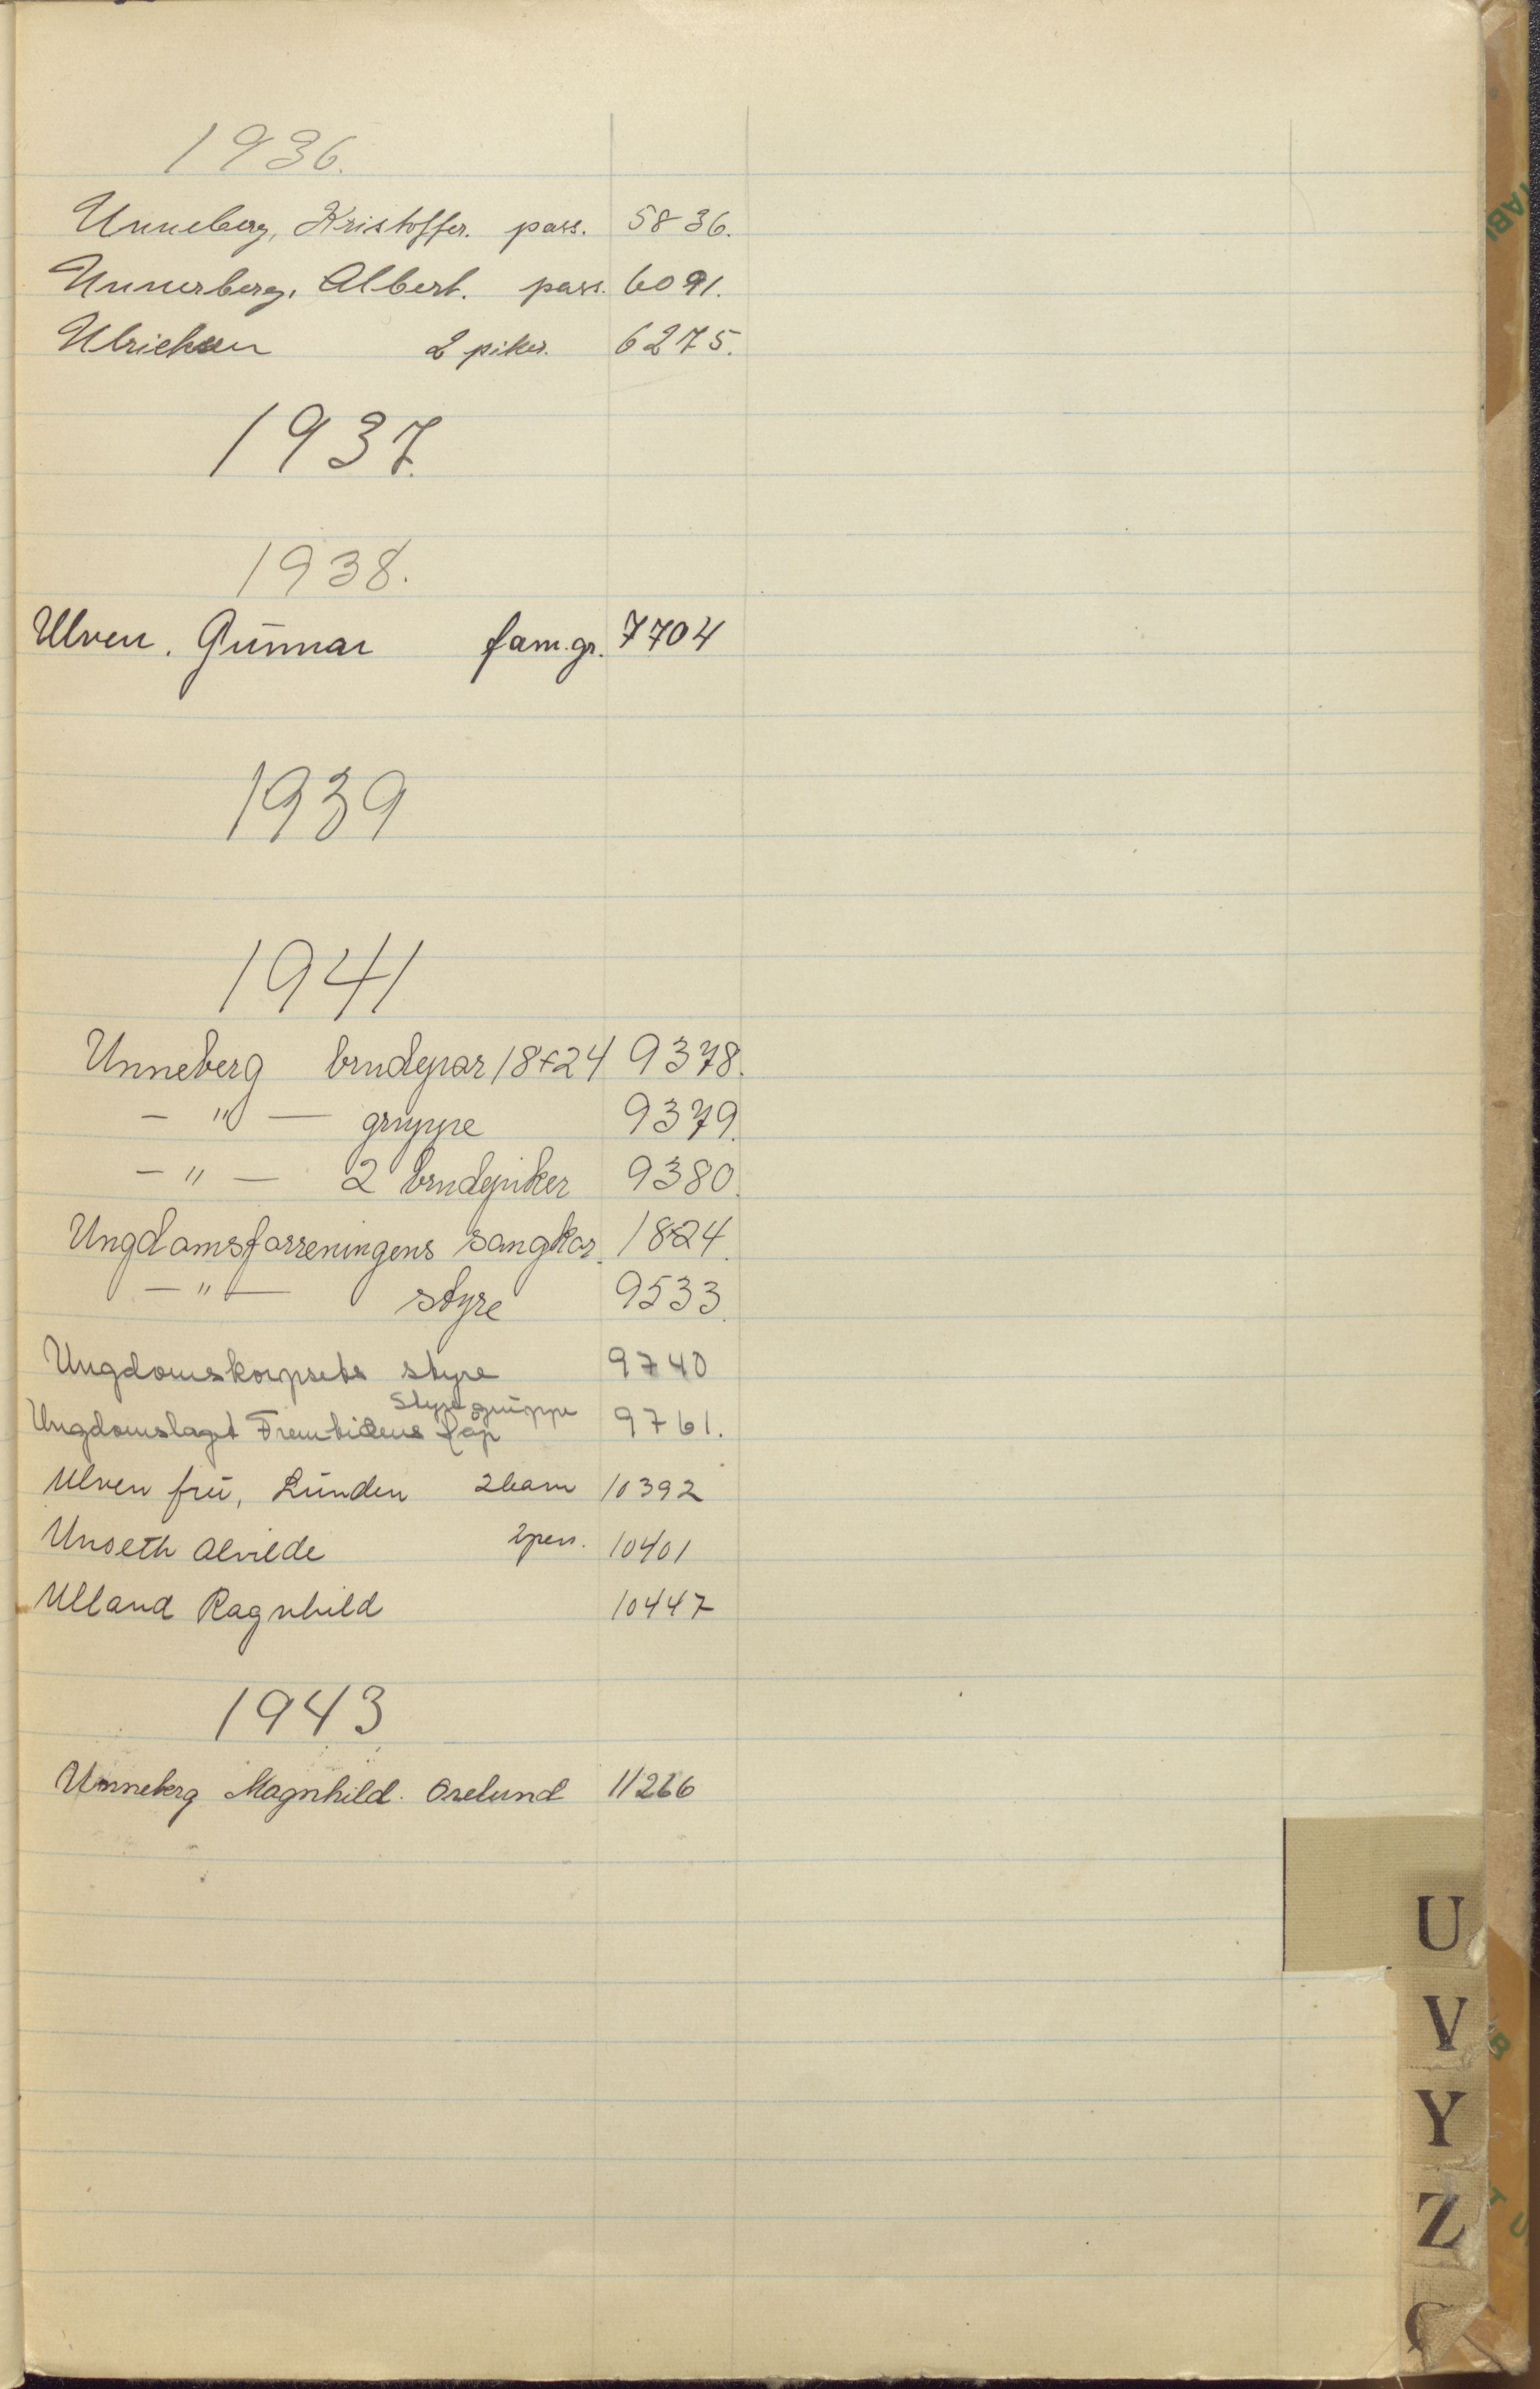 1936.
Unneberg, Kristoffer. pass. 5836.
Unnerberg, Albert. pass. 6091.
Ulricksen 2 piker. 6275.
1937.
1938.
Ulven. Gunnar fam.gr. 7704
1939
1941
Unneberg brudepar 18+24 9378.
— " — gruppe 9379.
— " — 2 brudepiker 9380.
Ungdomsforreningens sangkor. 18+24.
— " — styre 9533.
Ungdomskorpsets styre 9740
Styre gruppe
Ungdomslaget Fremtidens Håp 9761.
Ulven fru, Lunden 2 barn 10392
Unseth Alvilde 2 pers. 10401
Ulland Ragnhild 10447
1943
Unneberg Magnhild. Orelund 11266
U
V
Y
Z